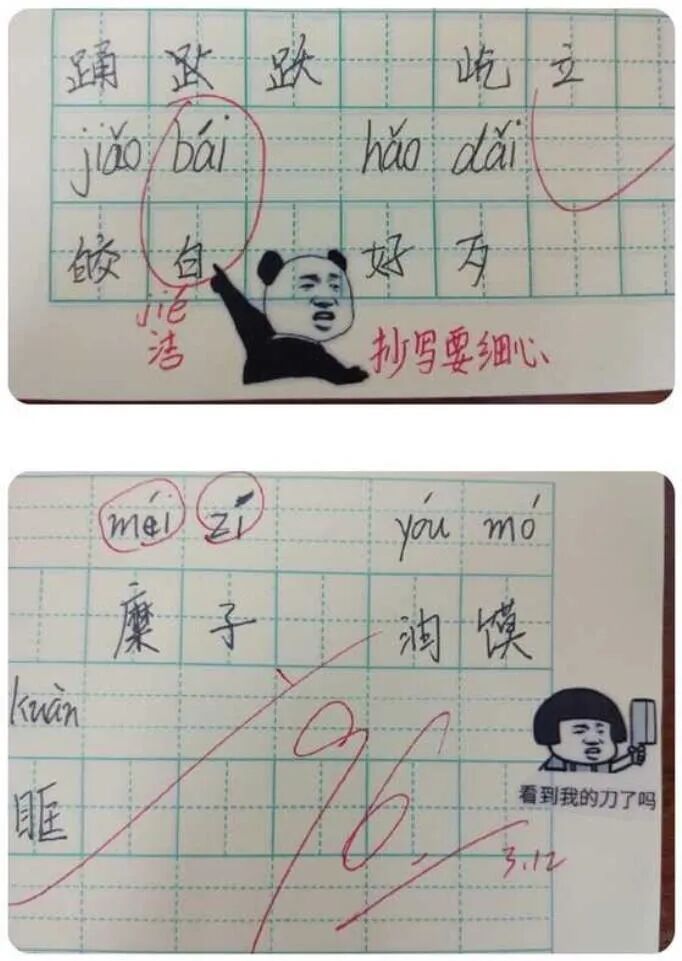 踊 跃 跌 屹 立
jiǎo bái hǎo dǎi
皎 白 好 歹
jié
洁
抄写要细心
méi zí yóu mó
糜 子 油 馍
kuàn
眶
96
看到我的刀了吗
3.12